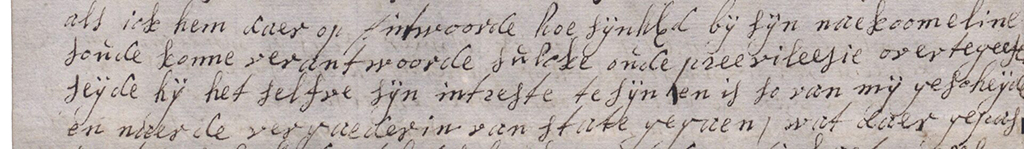 als ick hem daer op antwoorde hoe sijnHEd bij sijn naekoomeline
soude konne verantwoorde sulcke oude preevileesie overtegeefe
seijde hij het selfve sijn intreste te sijn en is so van mij gescheijde
en naer de vergaederin van state gegaen, wat daer gepas